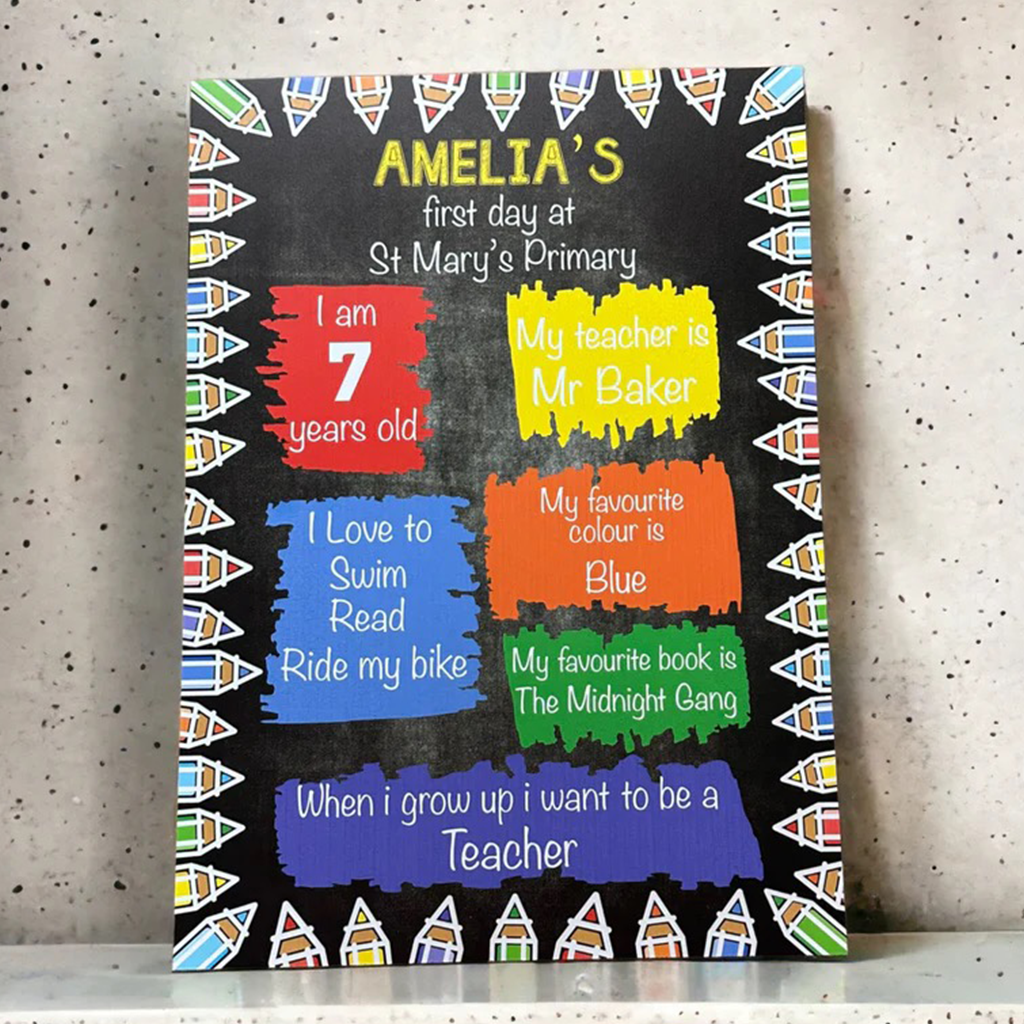 AMELIA'S
first day at
St Mary's Primary
I am
7
years old
My teacher is
Mr Baker
I Love to
Swim
Read
Ride my bike
My favourite
colour is
Blue
My favourite book is
The Midnight Gang
When i grow up i want to be a
Teacher